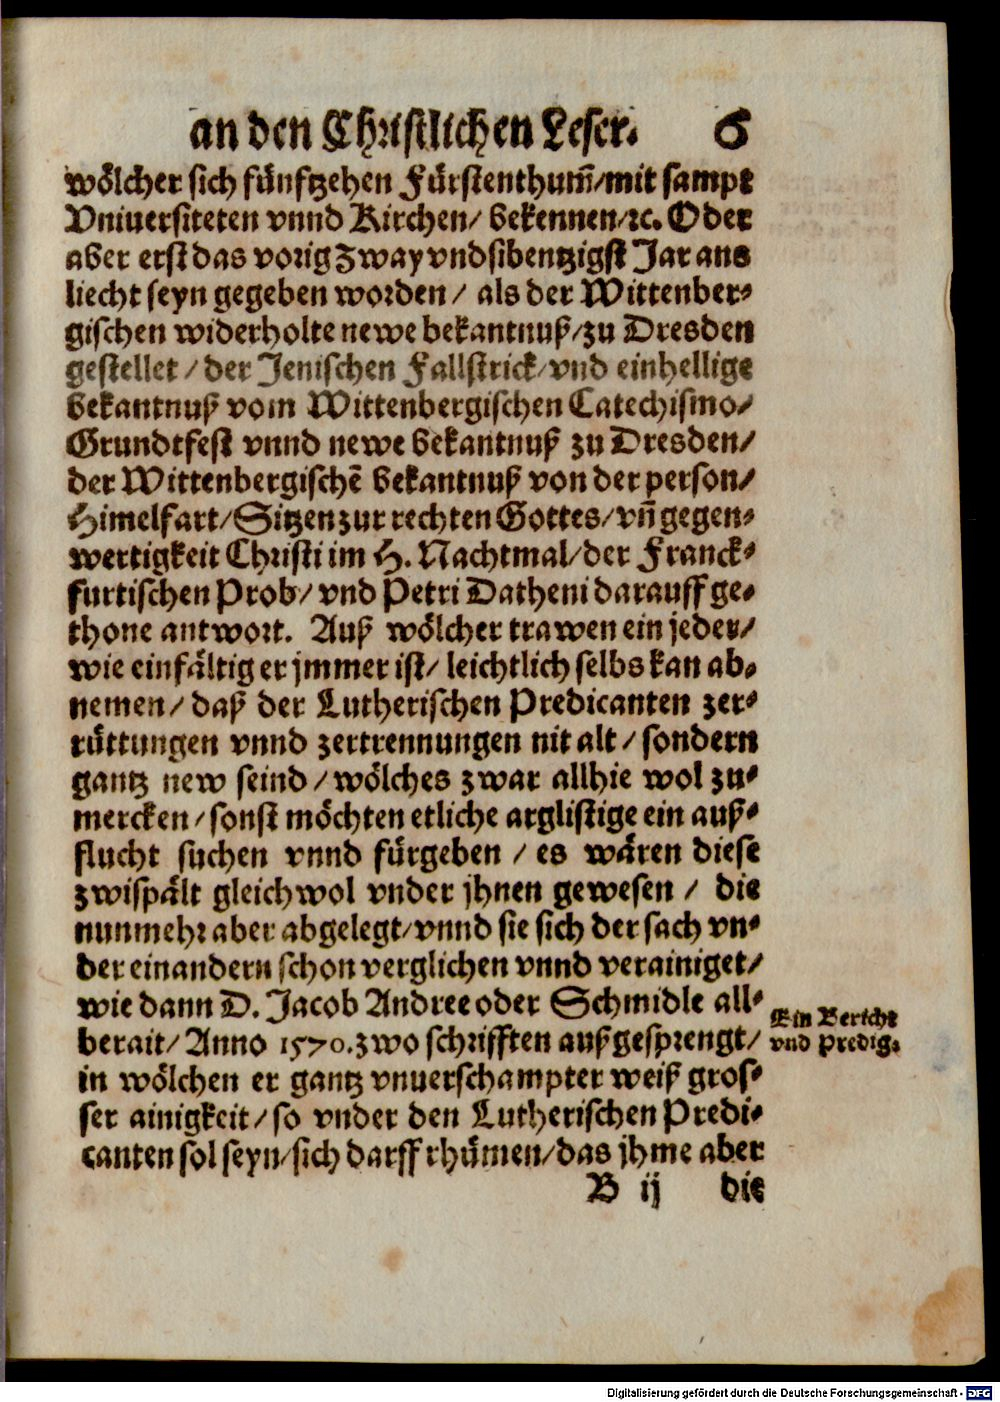 an den Christlichen Leser. 6
wölcher sich fünfftzehen Fürstenthum̃/mit sampt
Vniuersiteten vnnd Kirchen/ bekennen/ꝛc. Oder
aber erst das vorig Zway vnd sibentzigst Jar ans
liecht seyn gegeben worden/ als der Wittenber-
gischen widerholte newe bekantnuß/zu Dresden
gestellet/der Jenischen Fallstrick/vnd einhellige
bekantnuß vom Wittenbergischen Catechismo/
Grundtfest vnnd newe bekantnuß zu Dresden/
der Wittenbergischẽ bekantnuß von der person/
Himelfart/Sitzen zur rechten Gottes/vñ gegen-
wertigkeit Christi im H. Nachtmal/der Franck-
furtischen Prob/ vnd Petri Datheni darauff ge-
thone antwort. Auß wölcher trawen ein jeder/
wie einfältig er jmmer ist/ leichtlich selbs kan ab-
nemen/ daß der Lutherischen Predicanten zer-
rüttungen vnnd zertrennungen nit alt/ sondern
gantz new seind/wölches zwar allhie wol zu-
mercken/sonst möchten etliche arglistige ein auß-
flucht suchen vnnd fürgeben/ es wären diese
zwispält gleichwol vnder jhnen gewesen/ die
nunmehr aber abgelegt/vnnd sie sich der sach vn-
der einandern schon verglichen vnnd verainiget/
wie dann D. Jacob Andree oder Schmidle all-
berait/ Anno 1570. zwo schrifften außgesprengt/
in wölchen er gantz vnuerschampter weiß gros-
ser ainigkeit/so vnder den Lutherischen Predi-
canten sol seyn/sich darff rhümen/das jhme aber
Ein Bericht
vnd Predig.
B ij die
Digitalisierung gefördert durch die Deutsche Forschungsgemeinschaft - DFG